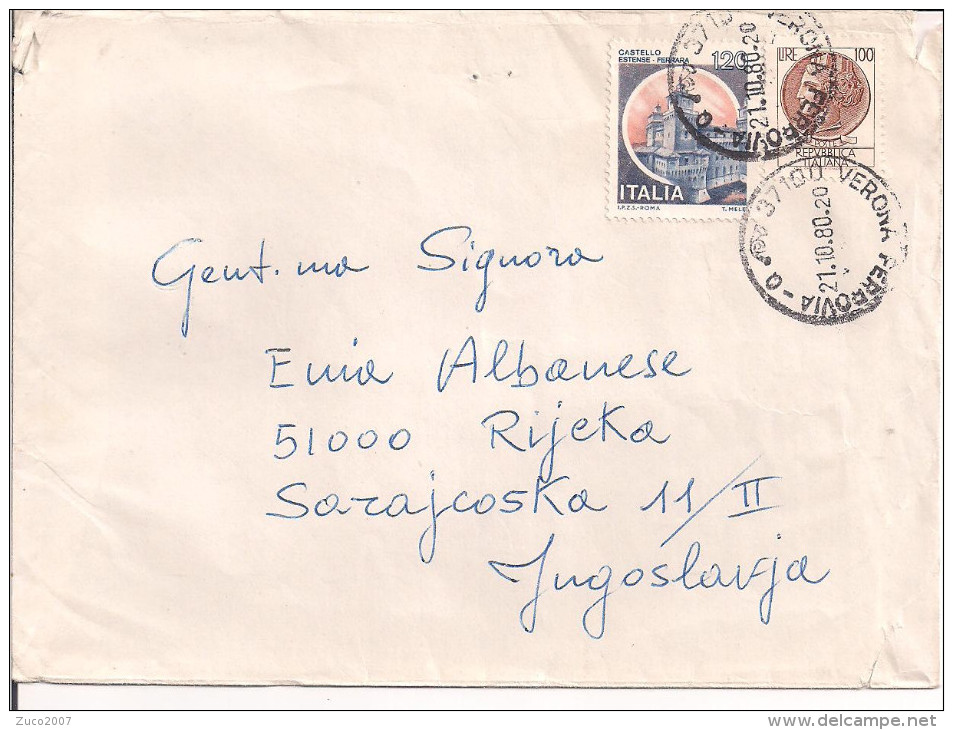 CASTELLO
ESTENSE - FERRARA 120
ITALIA
I.P.Z.S.-ROMA T. MELE
LIRE 100
POSTE
REPVBBLICA
ITALIANA
37100 VERONA FERROVIA - Q
21.10.80.20
37100 VERONA FERROVIA - Q
21.10.80.20
Gent.ma Signora
Enia Albanese
51000 Rijeka
Sarajcoska 11/II
Jugoslavja
Zuco2007
delcampe.net